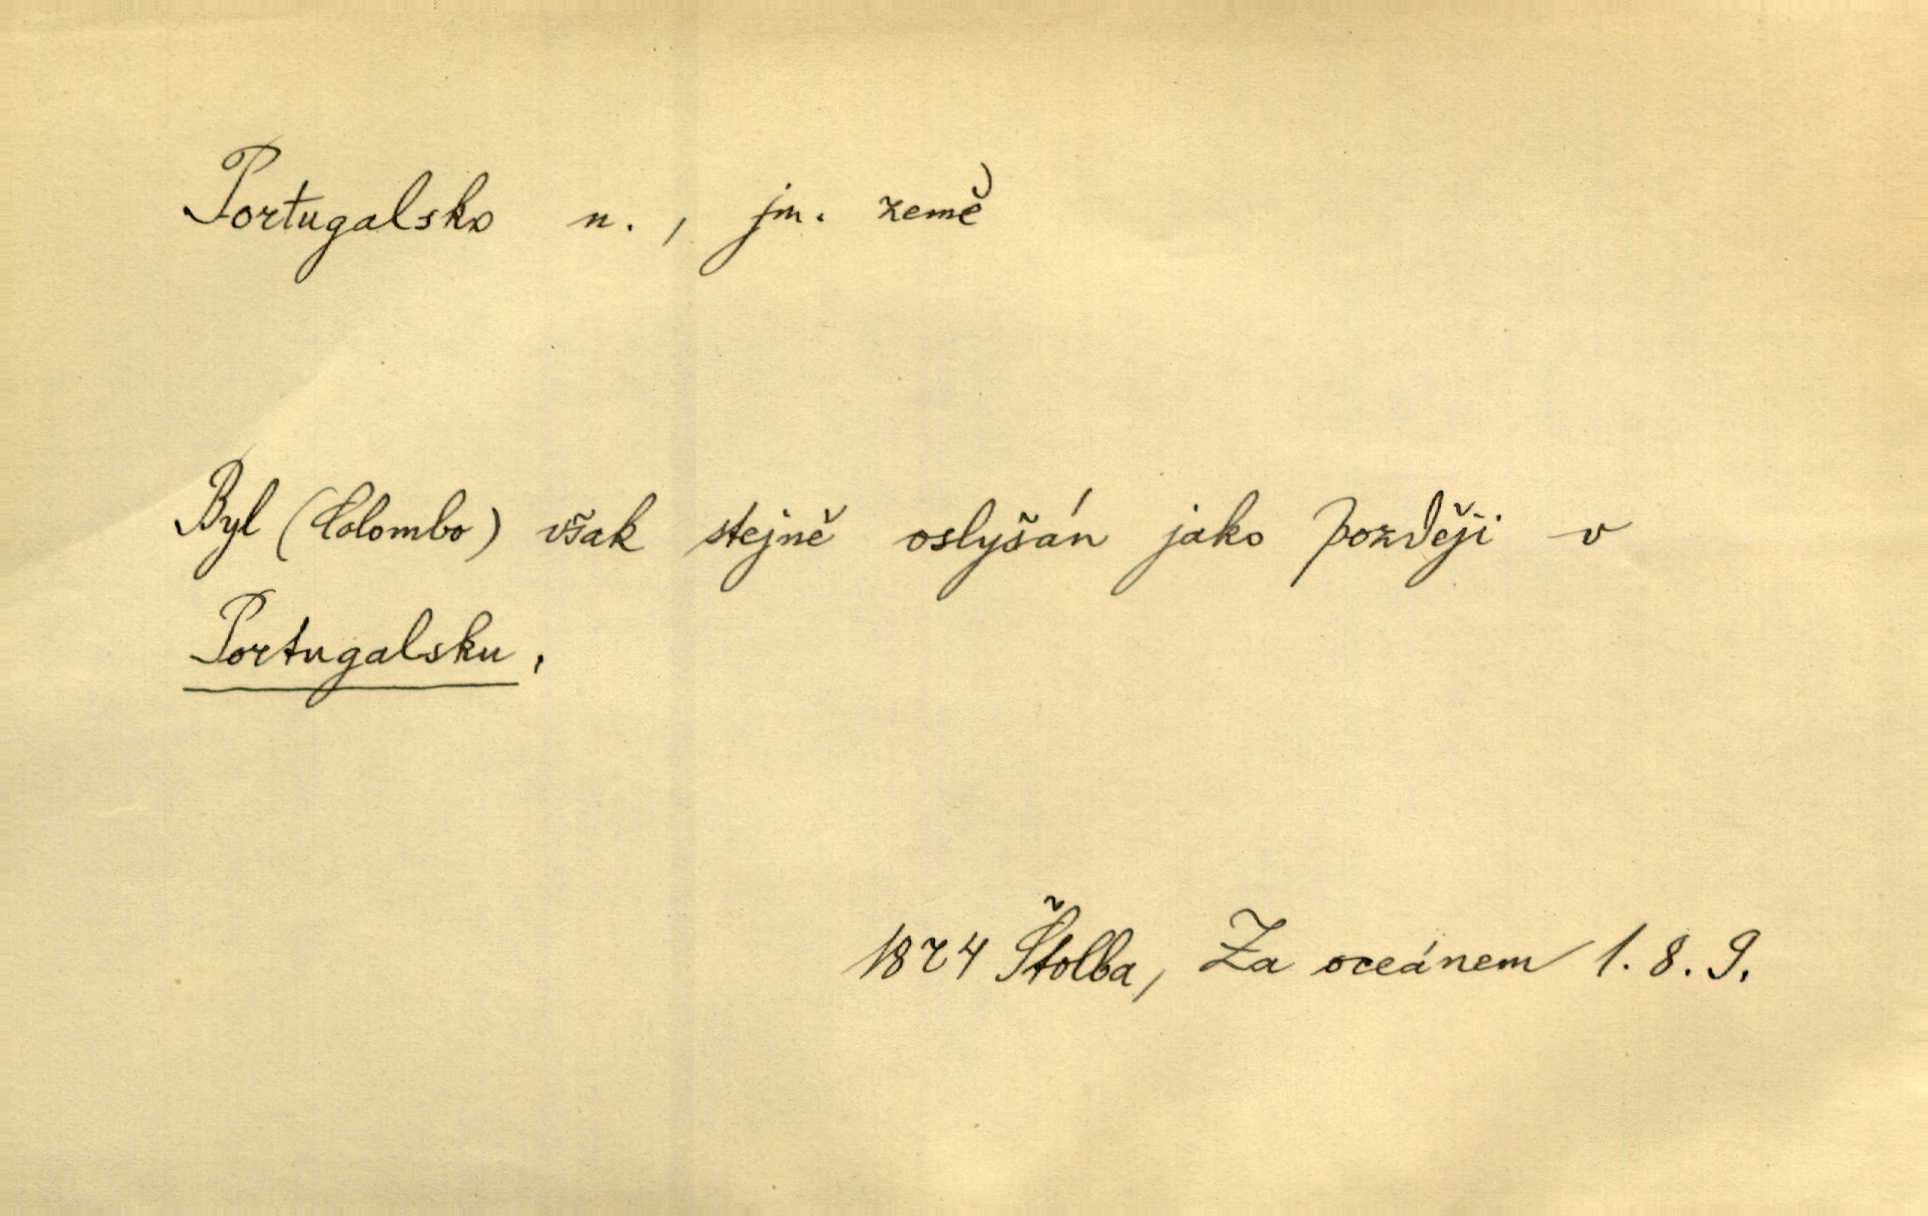 Portugalsko n., jm. země)
Byl (Colombo) však stejně oslyšán jako později v
Portugalsku.
1874 Štolba, Za oceánem 1. 8. 9.